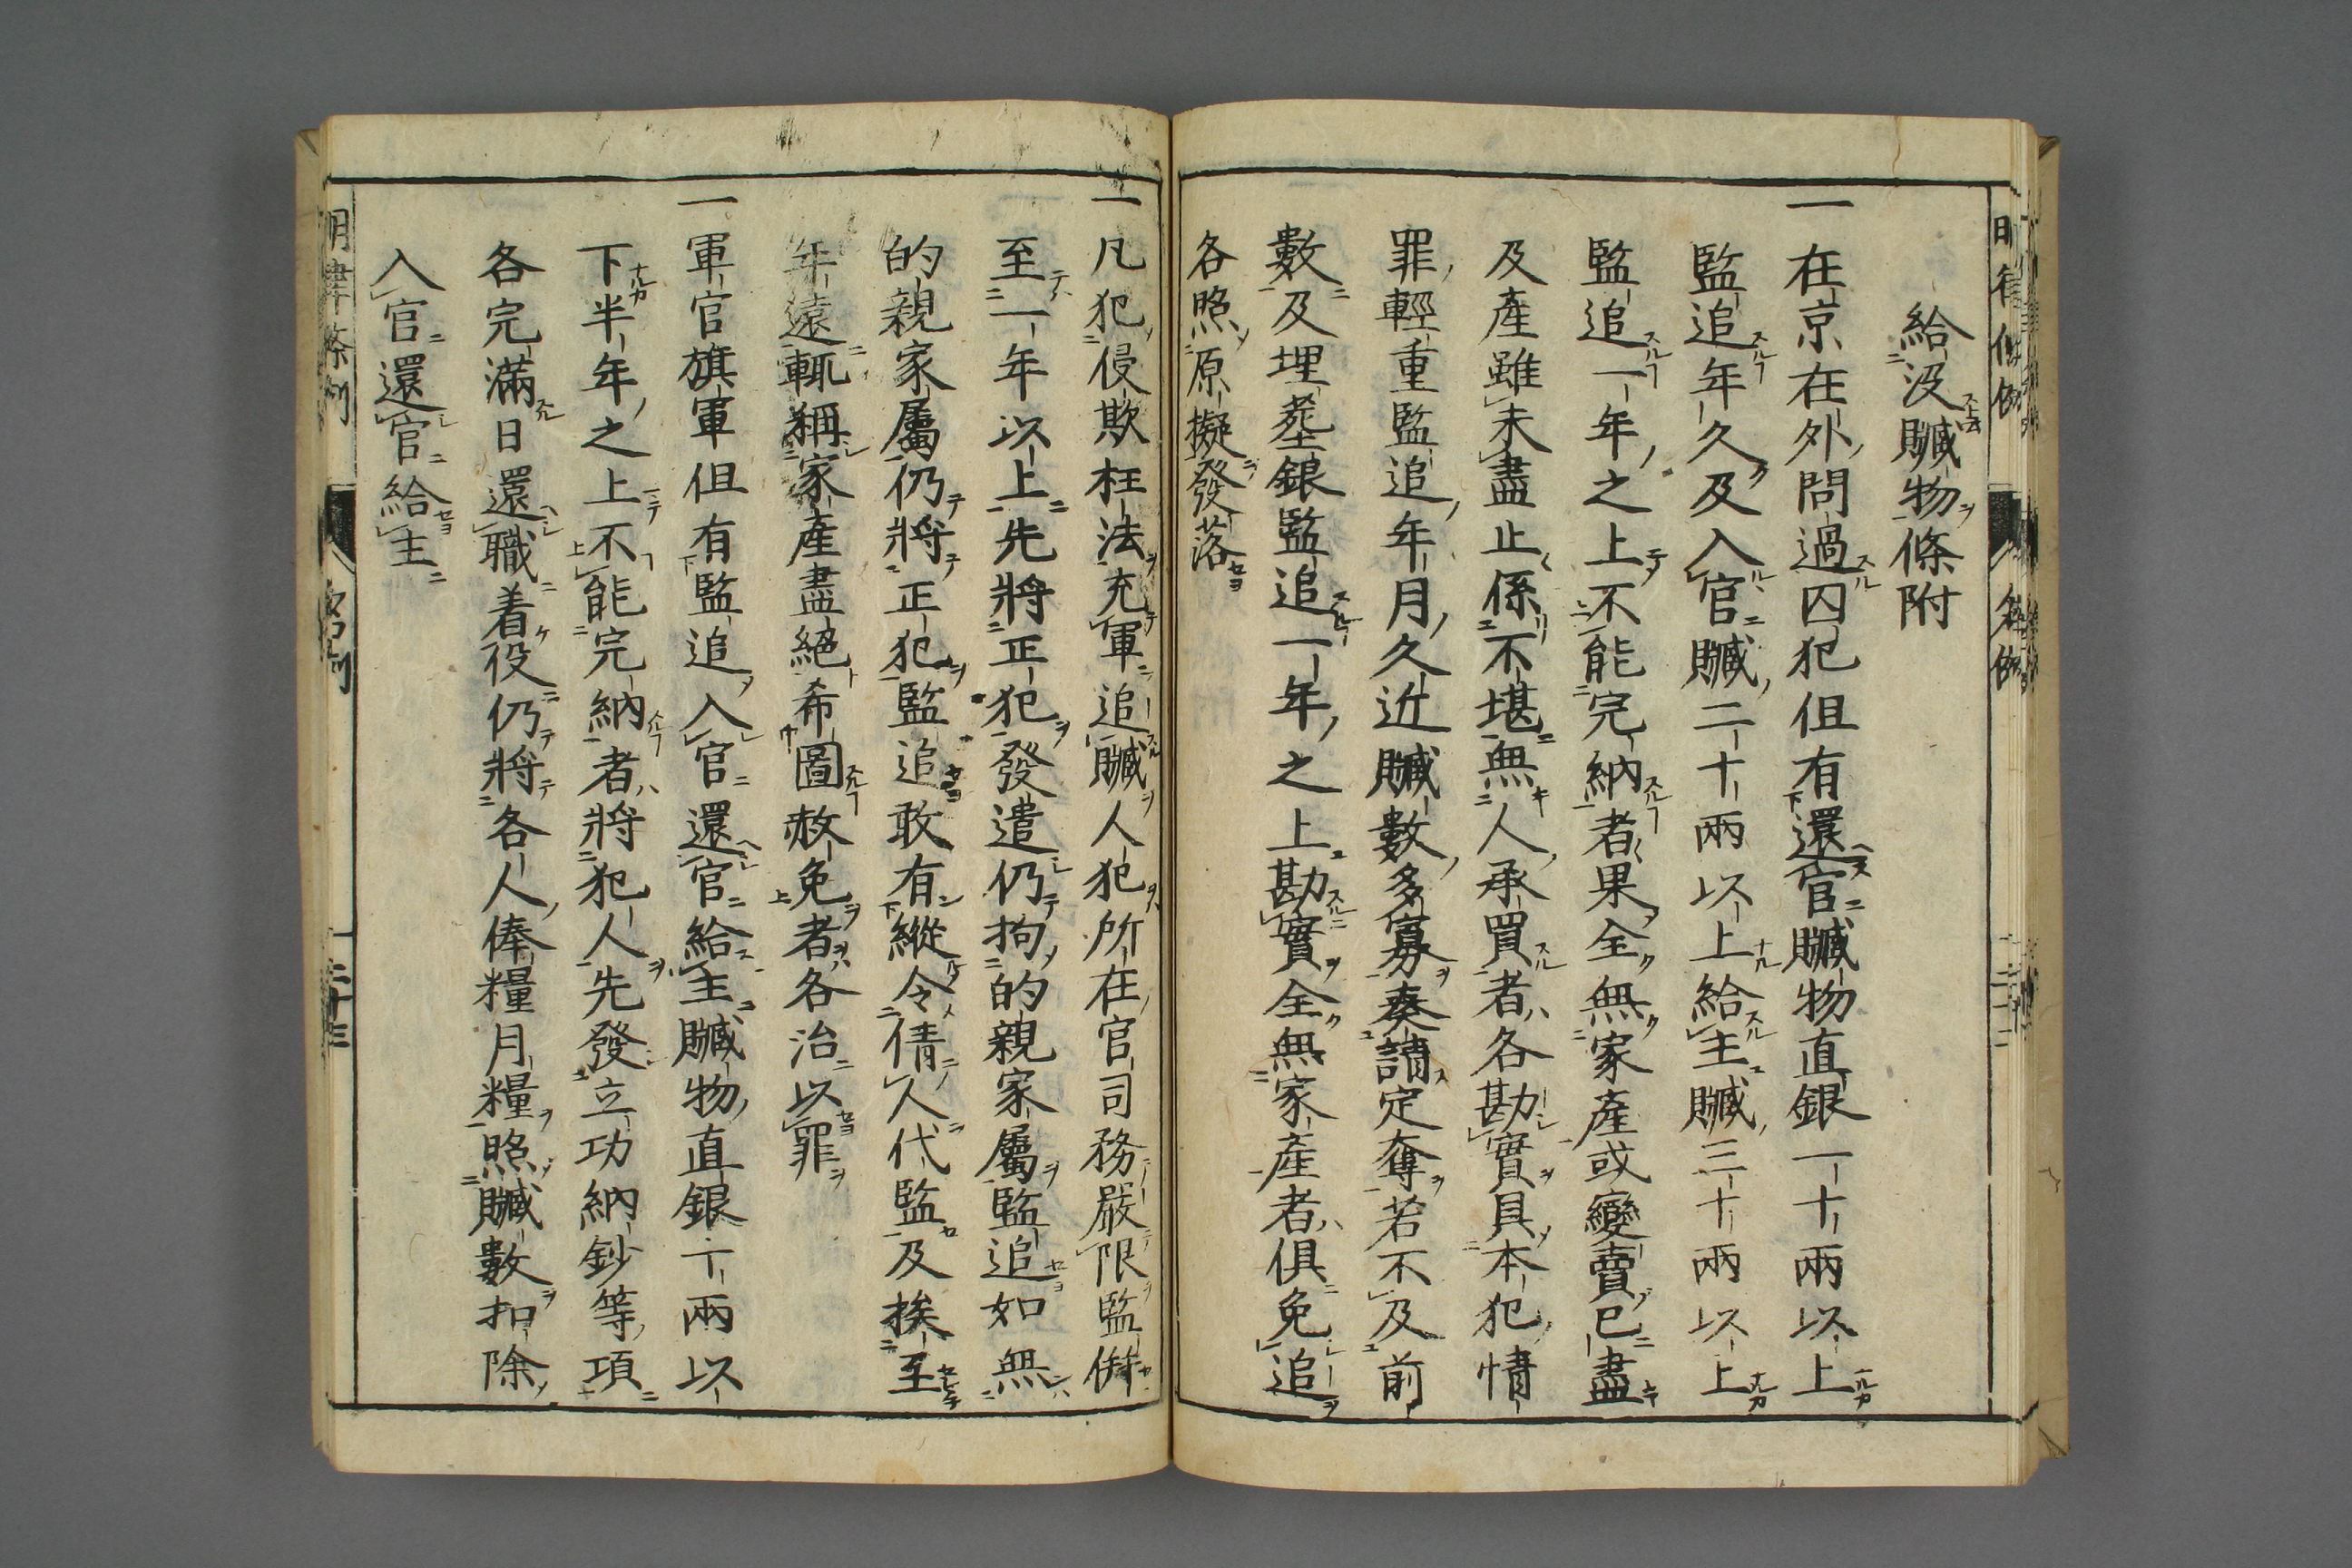 給没贓物條附
一在京在外問過囚犯但有還官贓物直銀一十兩以上
監追年久及入官贓二十兩以上給主贓三十兩以上
監追一年之上不能完納者果全無家產或變賣已盡
及產雖未盡止係不堪無人承買者各勘實具本犯情
罪輕重監追年月久近贓數多寡奏請定奪若不及前
數及埋葬銀監追一年之上勘實全無家產者俱免追
各照原擬發落
一凡犯侵欺枉法充軍追贓人犯所在官司務嚴限監併
至一年以上先將正犯發遣仍拘的親家屬監追如無
的親家屬仍將正犯監追敢有縱令倩人代監及挨至
年遠輒稱家產盡絕希圖赦免者各治以罪
一軍官旗軍但有監追入官還官給主贓物直銀十兩以
下半年之上不能完納者將犯人先發立功納鈔等項
各完滿日還職着役仍將各人俸糧月糧照贓數扣除
入官還官給主
明律條例 名例 二十三